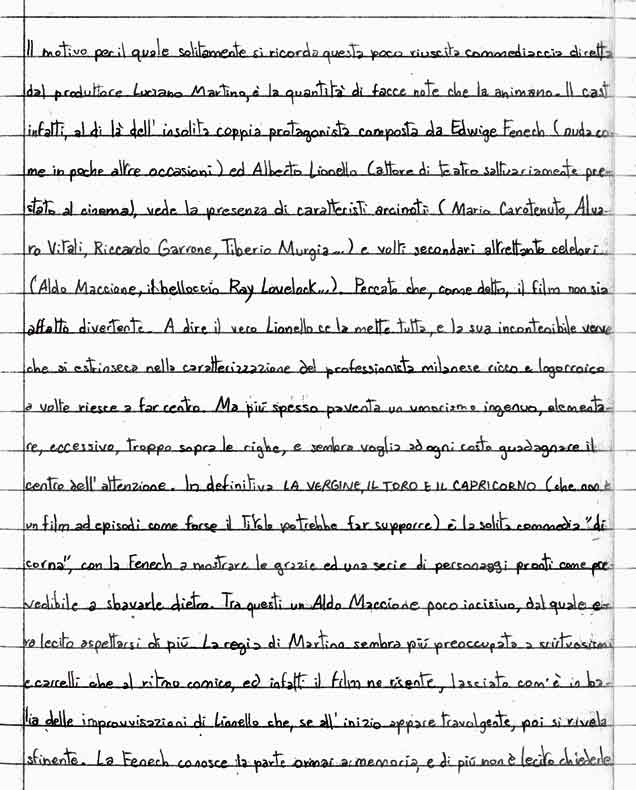 Il motivo per il quale solitamente si ricorda questa poco riuscita commediaccia diretta
dal produttore Luciano Martino, è la quantità di facce note che la animano. Il cast
infatti, al di là dell'insolita coppia protagonista composta da Edwige Fenech (nuda co
me in poche altre occasioni) ed Alberto Lionello (attore di teatro saltuariamente pre-
stato al cinema), vede la presenza di caratteristi arcinoti (Mario Carotenuto, Alva
ro Vitali, Riccardo Garrone, Tiberio Murgia...) e volti secondari altrettanto celebri
(Aldo Maccione, il belloccio Ray Lovelock...). Peccato che, come detto, il film non sia
affatto divertente. A dire il vero Lionello ce la mette tutta, e la sua incontenibile verve
che si estrinseca nella caratterizzazione del professionista milanese ricco e logorroico
a volte riesce a far centro. Ma più spesso paventa un umorismo ingenuo, elementa-
re, eccessivo, troppo sopra le righe, e sembra voglia ad ogni costo guadagnare il
centro dell'attenzione. In definitiva LA VERGINE, IL TORO E IL CAPRICORNO (che non è
un film ad episodi come forse il titolo potrebbe far supporre) è la solita commedia "di
corna", con la Fenech a mostrare le grazie ed una serie di personaggi pronti come pre
vedibile a sbavarle dietro. Tra questi un Aldo Maccione poco incisivo, dal quale e-
ra lecito aspettarsi di più. La regia di Martino sembra più preoccupata a
e carrelli che al ritmo comico, ed infatti il film ne risente, lasciato com'è in ba-
lia delle improvvisazioni di Lionello che, se all'inizio appare travolgente, poi si rivela
sfinente. La Fenech conosce la parte ormai a memoria, e di più non è lecito chiederle